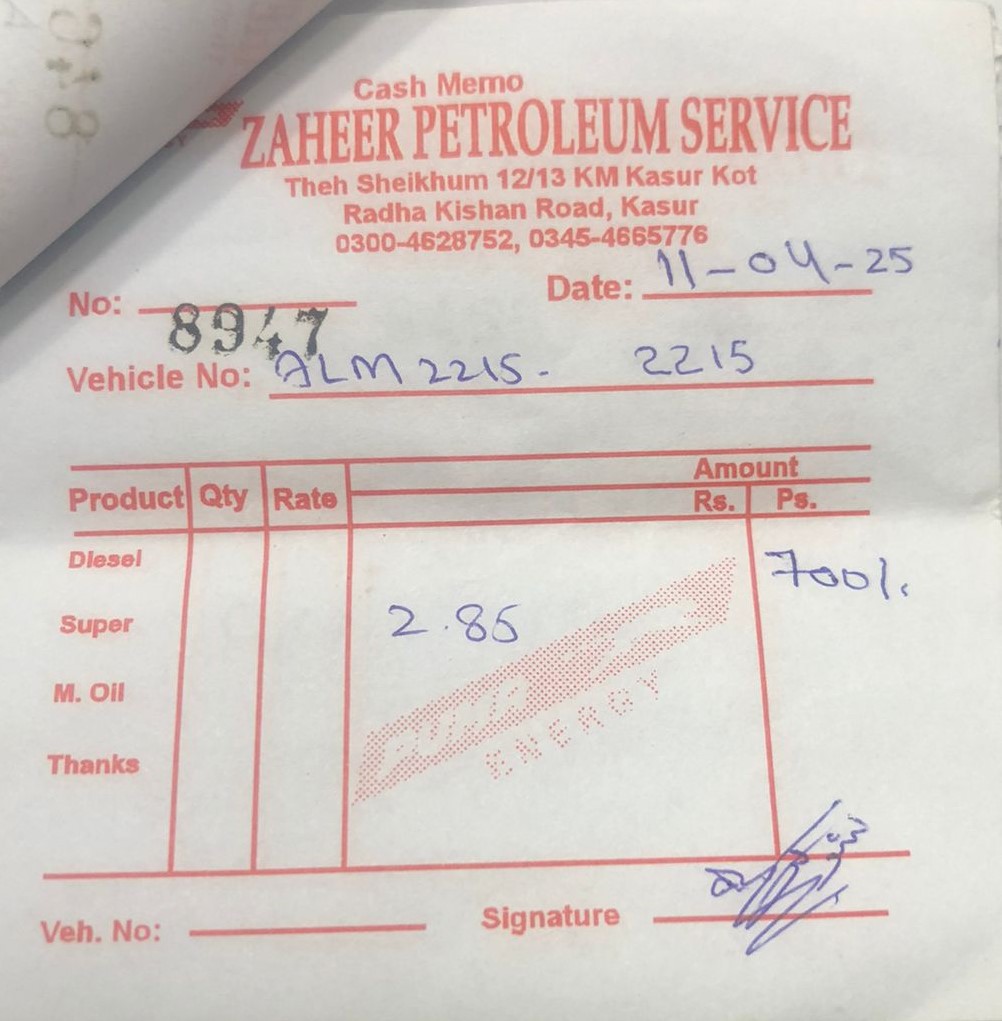 Cash Memo
ZAHEER PETROLEUM SERVICE
Theh Sheikhum 12/13 KM Kasur Kot
Radha Kishan Road, Kasur
0300-4628752, 0345-4665776
No: 8947 Date: 11-04-25
Vehicle No: ALM 2215- 2215
Amount
Product Qty Rate Rs. Ps.
Diesel 700/.
Super 2.85
M. Oil
PUMA
ENERGY
Thanks
Veh. No: Signature